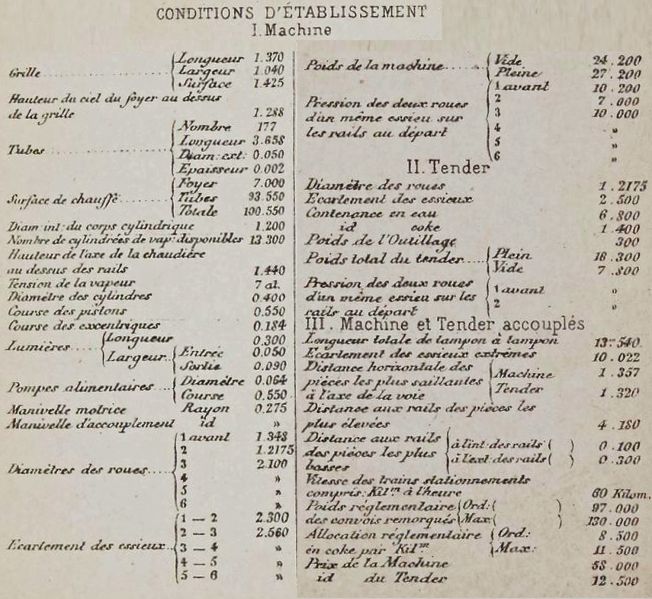 CONDITIONS D'ÉTABLISSEMENT
I. Machine
Grille Longueur 1.370
Largeur 1.040
Surface 1.425
Hauteur du ciel du foyer au dessus
de la grille 1.288
Tubes Nombre 177
Longueur 3.658
Diam: ext: 0.050
Epaisseur 0.002
Surface de chauffe Foyer 7.000
Tubes 93.550
Totale 100.550
Diam int: du corps cylindrique 1.200
Nombre de cylindrées de vap: disponibles 13.300
Hauteur de l'axe de la chaudière
au dessus des rails 1.440
Tension de la vapeur 7 at.
Diamètre des cylindres 0.400
Course des pistons 0.550
Course des excentriques 0.184
Lumières Longueur 0.300
Largeur Entrée 0.050
Sortie 0.090
Pompes alimentaires Diamètre 0.064
Course 0.550
Manivelle motrice Rayon 0.275
Manivelle d'accouplement id "
Diamètres des roues 1 avant 1.348
2 1.2175
3 2.100
4 "
5 "
6 "
Ecartement des essieux 1 — 2 2.300
2 — 3 2.560
3 — 4 "
4 — 5 "
5 — 6 "
Poids de la machine Vide 24.200
Pleine 27.200
Pression des deux roues
d'un même essieu sur
les rails au départ
1 avant 10.200
2 7.000
3 10.000
4 "
5 "
6 "
II. Tender
Diamètre des roues 1.2175
Ecartement des essieux 2.500
Contenance en eau 6.800
id coke 1.400
Poids de l'Outillage 300
Poids total du tender Plein 18.300
Vide 7.800
Pression des deux roues
d'un même essieu sur les
rails au départ
1 avant "
2 "
III. Machine et Tender accouplés
Longueur totale de tampon à tampon 13.m540
Ecartement des essieux extrêmes 10.022
Distance horizontale des
pièces les plus saillantes
à l'axe de la voie
Machine 1.357
Tender 1.320
Distance aux rails des pièces les
plus élevées 4.180
Distance aux rails
des pièces les plus
basses
à l'int: des rails ( ) 0.100
à l'ext: des rails ( ) 0.300
Vitesse des trains stationnements
compris: Kil.m à l'heure 60 Kilom.
Poids réglementaire Ord: ( ) 97.000
des convois remorqués Max: ( ) 130.000
Allocation réglementaire Ord: 8.500
en coke par Kil.m Max: 11.500
Prix de la Machine 58.000
id du Tender 12.500